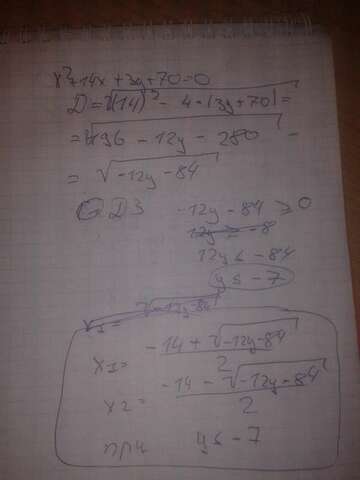 x²+14x+3y+70=0
D=√(14)²-4·(3y+70)=
=√196-12y-280=
=√-12y-84
ОДЗ -12y-84≥0
12y≤-84
y≤-7
x₁= √-12y-84
x₁= -14+√-12y-84 / 2
x₂= -14-√-12y-84 / 2
при y≤-7